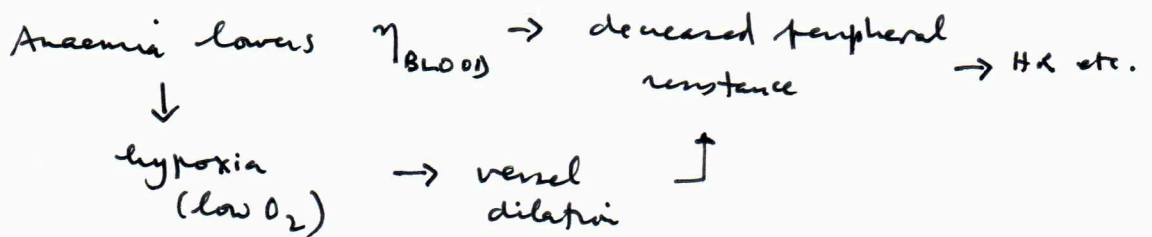 Anaemia lowers η BLOOD → decreased peripheral resistance → HR etc.
↓
hypoxia (low O₂) → vessel dilation